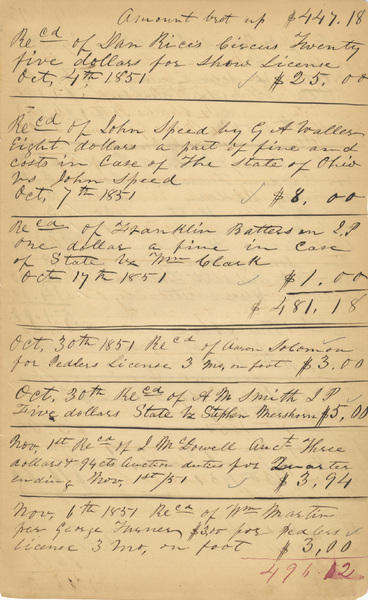 Amount brot up $447.18
Recd of Dan Rices Circus Twenty
five dollars for Show License
Oct, 4th 1851 $25.00
Recd of John Speed by G A Waller
Eight dollars a part of fine and
costs in Case of The State of Ohio
vs John Speed
Oct, 7th 1851 $8.00
Recd of Franklin Batterson J.P
one dollar a fine in Case
of State vs Wm Clark
Oct 17th 1851 $1.00
$481.18
Oct, 30th 1851 Recd of Aaron Solomon
for Pedlers License 3 mo, on foot $3.00
Oct, 30th Recd of A M Smith J P
Five dollars State vs Stephen $5,00
Nov, 1st Recd of J McLowell Auct Three
dollars & 94cts Auction duties for Quarter
ending Nov, 1st/51 $3,94
Nov, 6th 1851 Recd of Wm Martin
per George Turner $3,00 for pedlers
License 3 Mo, on foot $3,00
496.12